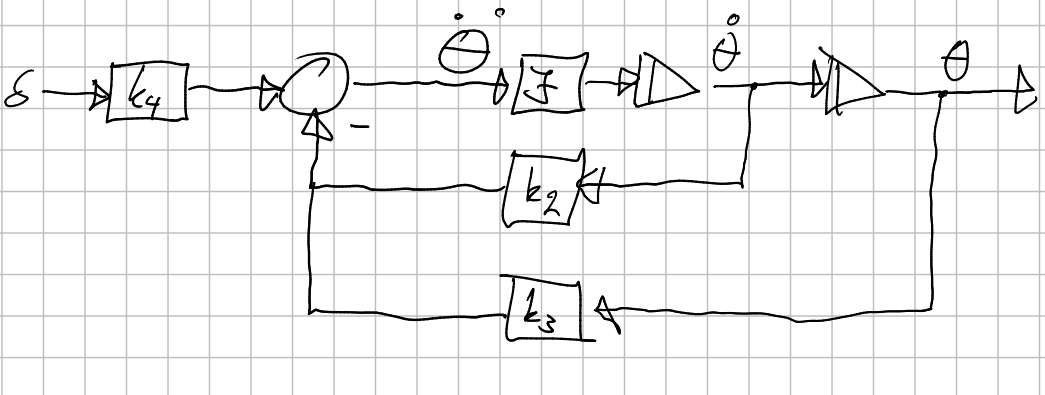 δ k4 θ̈ J θ̇ θ
−
k2
k3